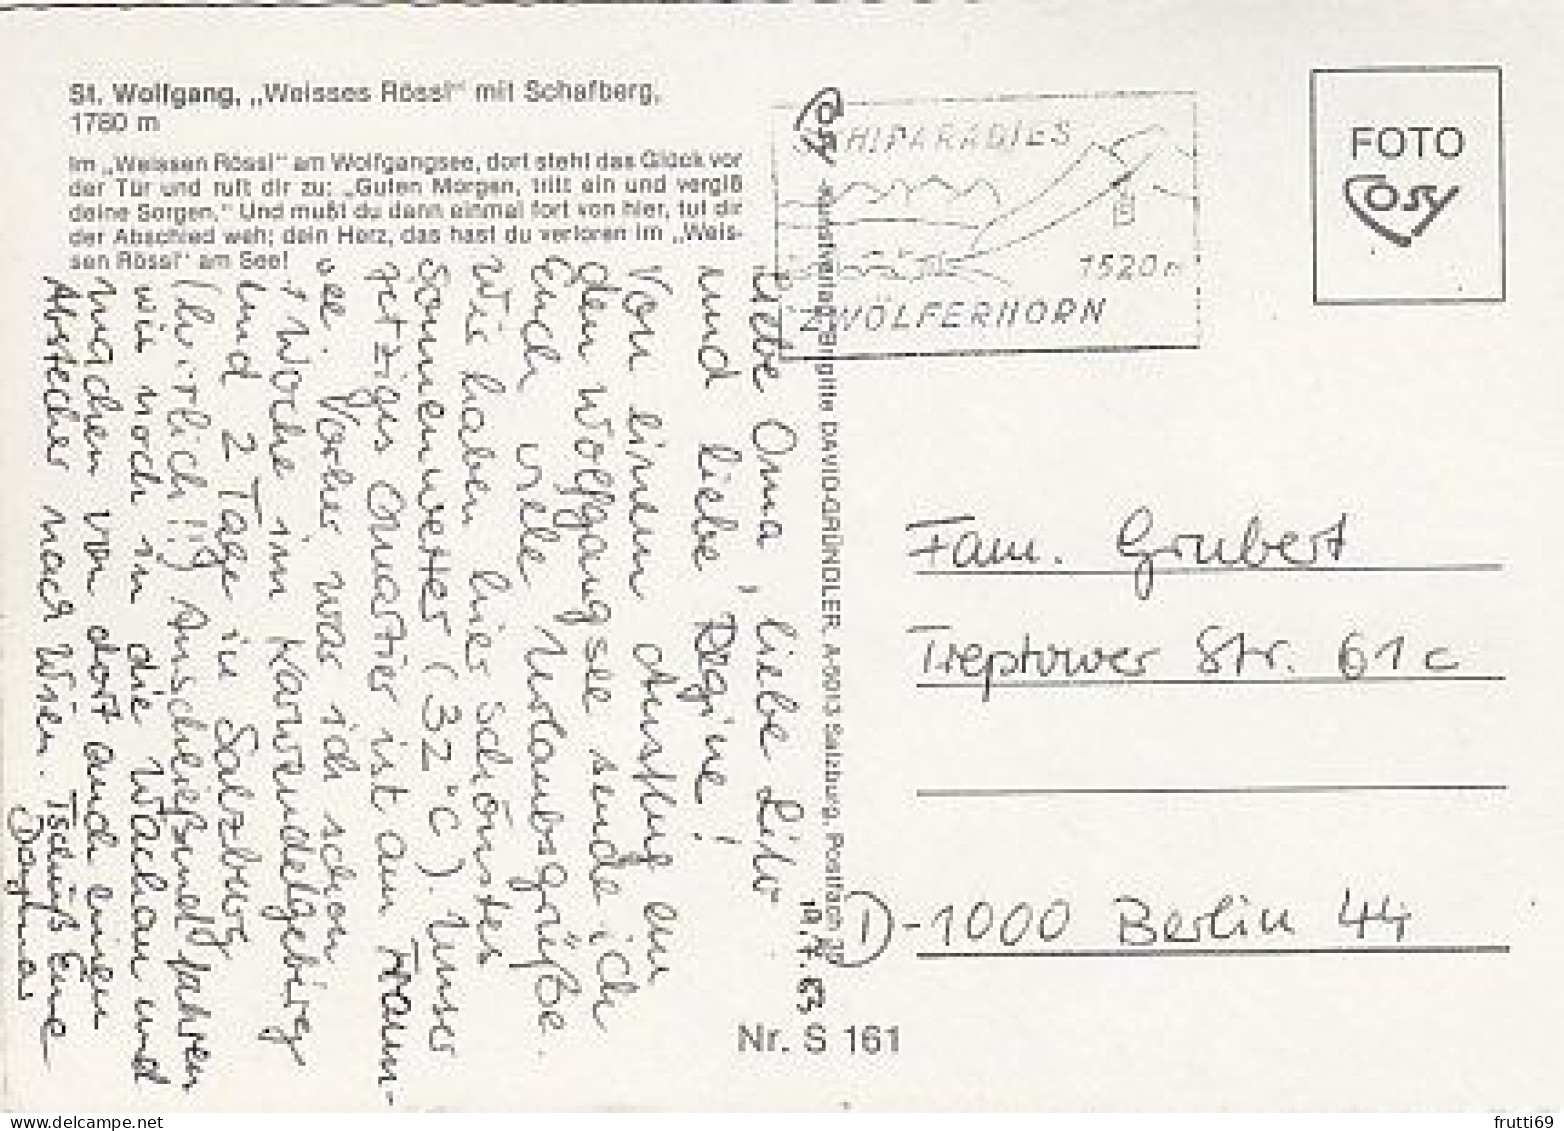 St. Wolfgang, „Weisses Rössl" mit Schafberg,
1780 m
Im „Weissen Rössl" am Wolfgangsee, dort steht das Glück vor
der Tür und ruft dir zu: „Guten Morgen, tritt ein und vergiß
deine Sorgen." Und mußt du dann einmal fort von hier, tut dir
der Abschied weh; dein Herz, das hast du verloren im „Weis-
sen Rössl" am See!
SCHIPARADIES
1520 m
ZWÖLFERHORN
FOTO
COSY
COSY
Kunstverlag Brigitte DAVID-GRÜNDLER, A-5013 Salzburg, Postfach
19.7.83
Liebe Oma, liebe Lilo
und liebe Regine!
Von einem Ausflug an
den Wolfgangsee sende ich
Euch viele Urlaubsgrüße.
Wir haben hier schönstes
Sonnenwetter (32°C). Unser
jetziges Quartier ist am Traun-
see. Vorher war ich schon
1 Woche im Karwendelgebirge
und 2 Tage in Salzburg
(herrlich!!!) Anschließend fahren
wir noch in die Wachau und
machen von dort auch einen
Abstecher nach Wien. Tschüß Eure
Dagmar
Fam. Grubert
Treptower Str. 61c
D-1000 Berlin 44
Nr. S 161
frutti69